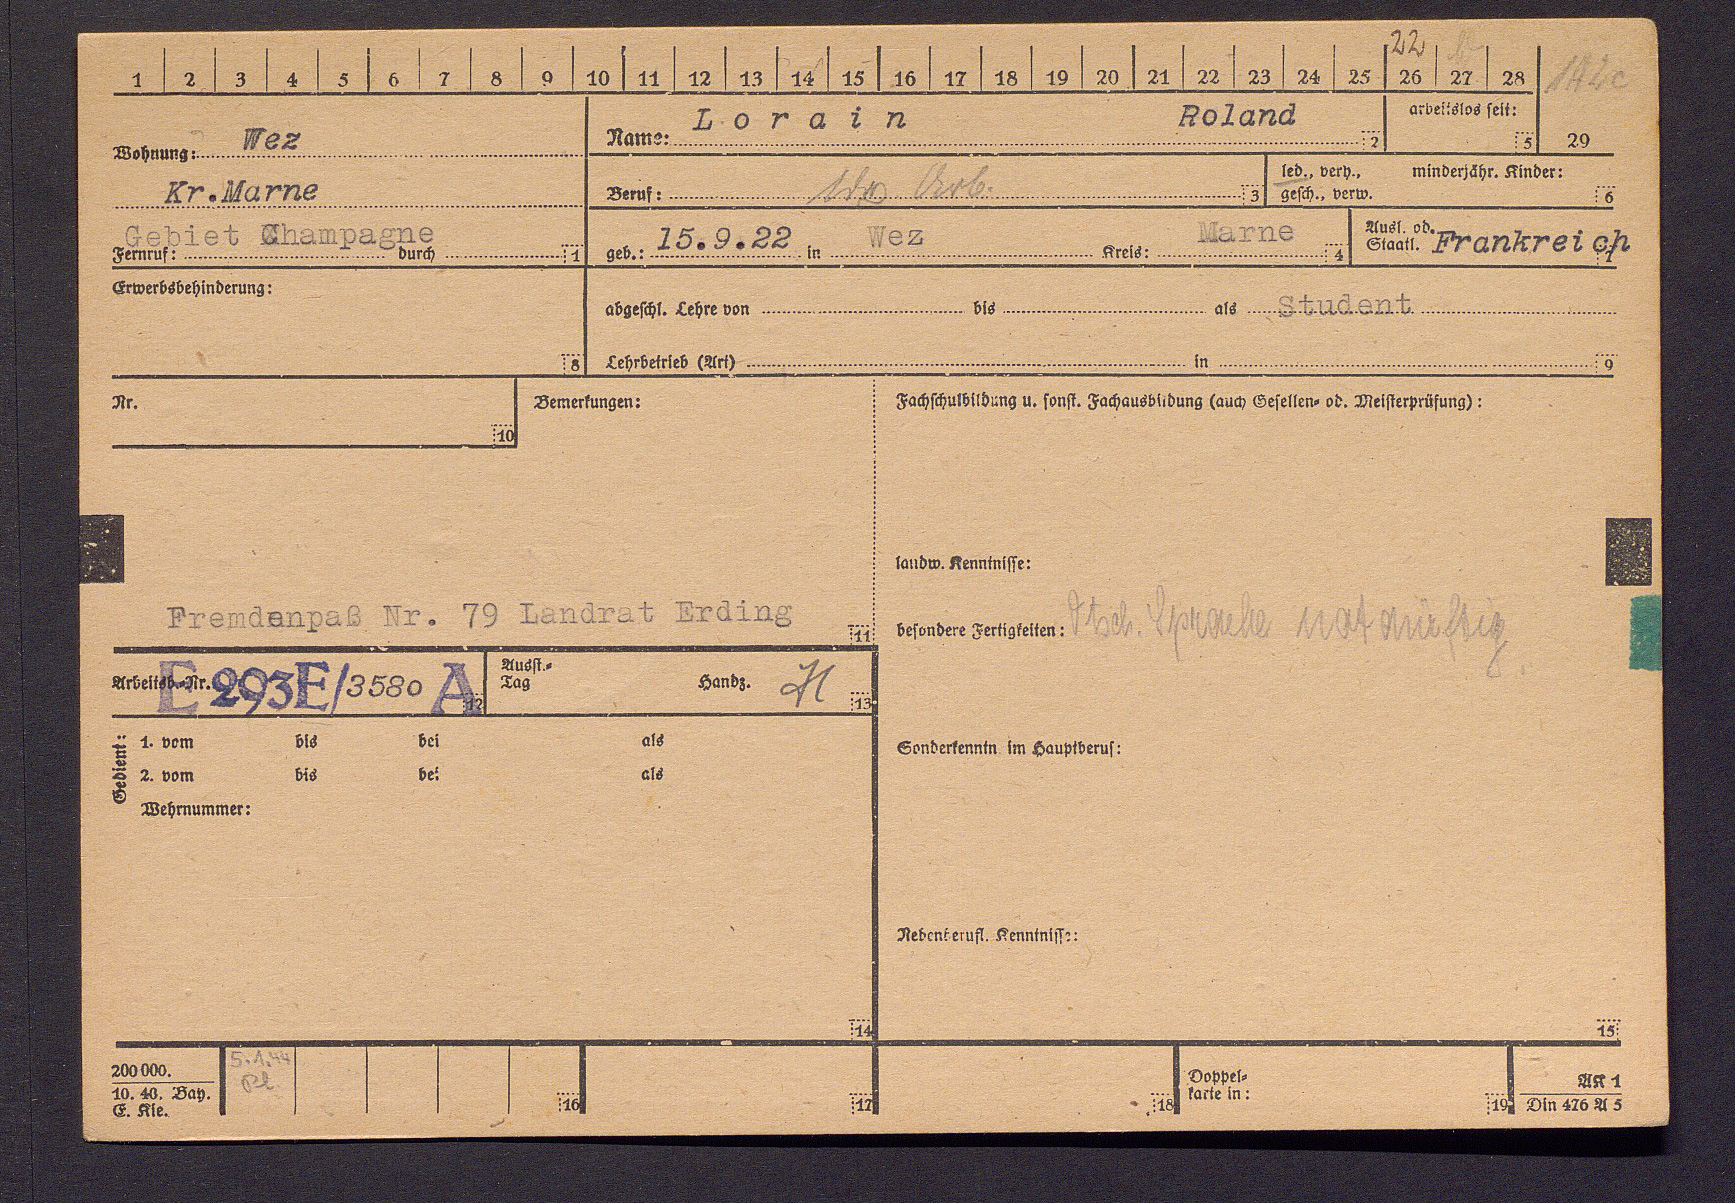 22
1 2 3 4 5 6 7 8 9 10 11 12 13 14 15 16 17 18 19 20 21 22 23 24 25 26 27 28
142c
Wohnung: Wez
Kr.Marne
Gebiet Champagne
Fernruf: durch 1
Name: Lorain Roland 2
arbeitslos seit: 5
29
Beruf: Arb. 3
led., verh., gesch., verw. minderjähr. Kinder: 6
geb.: 15.9.22 in Wez Kreis: Marne 4
Ausl. od. Staatl. Frankreich 7
Erwerbsbehinderung: 8
abgeschl. Lehre von bis als Student
Lehrbetrieb (Art) in 9
Nr. 10
Bemerkungen:
Fremdenpaß Nr. 79 Landrat Erding 11
Fachschulbildung u. sonst. Fachausbildung (auch Gesellen- od. Meisterprüfung):
landw. Kenntnisse:
besondere Fertigkeiten: Dtsch. Sprache notdürftig.
Arbeitsb.-Nr. E 293E/3580 A 12
Ausst.-Tag Handz. 13
Gedient: 1. vom bis bei als
2. vom bis bei als
Wehrnummer:
14
Sonderkenntn. im Hauptberuf:
Nebenberufl. Kenntnisse:
15
200 000.
10. 40. Bay.
E. Kle.
5.1.44
16 17 18
Doppel-
karte in: 19
AK 1
Din 476 A 5